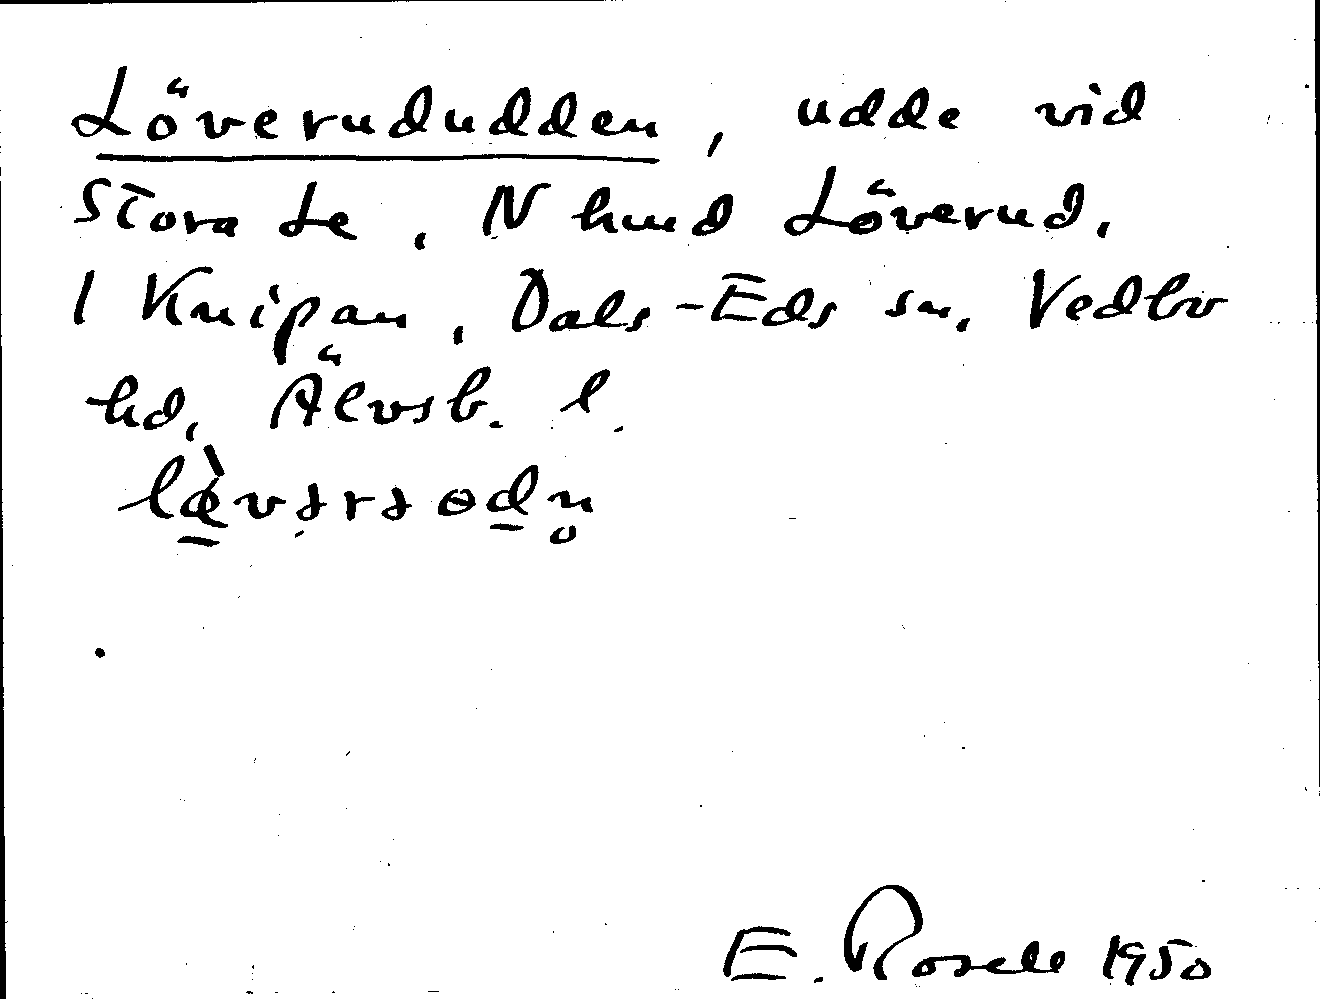 Löverududden, udde vid
Stora Le, N hmd Löverud,
1 Knipan, Dals-Eds sn, Vedbo
hd, Älvsb. l.
E. Rosell 1950